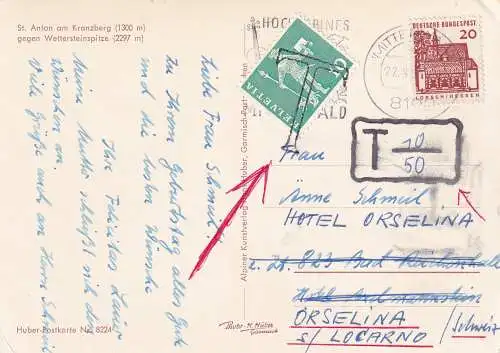 St. Anton am Kranzberg (1300 m)
gegen Wettersteinspitze (2297 m)
Liebe Frau Schmid,
zu Ihrem Geburtstag alles Gute
und die besten Wünsche
Ihre
Meine Mutter schließt sich den
Wünschen an.
Viele Grüße auch an Ihren
Huber-Postkarte Nr. 8224
Alpiner Kunstverlag Huber, Garmisch-Part
HOCH
HELVETIA
T
ALD
MITTE
81
DEUTSCHE BUNDESPOST
20
LORSCH/HESSEN
T 10/50
Frau
Anne Schmid
HOTEL ORSELINA
z. Zt. 823 Bad
ORSELINA
s/ LOCARNO
(Schweiz)
Photo-H. Huber
Garmisch